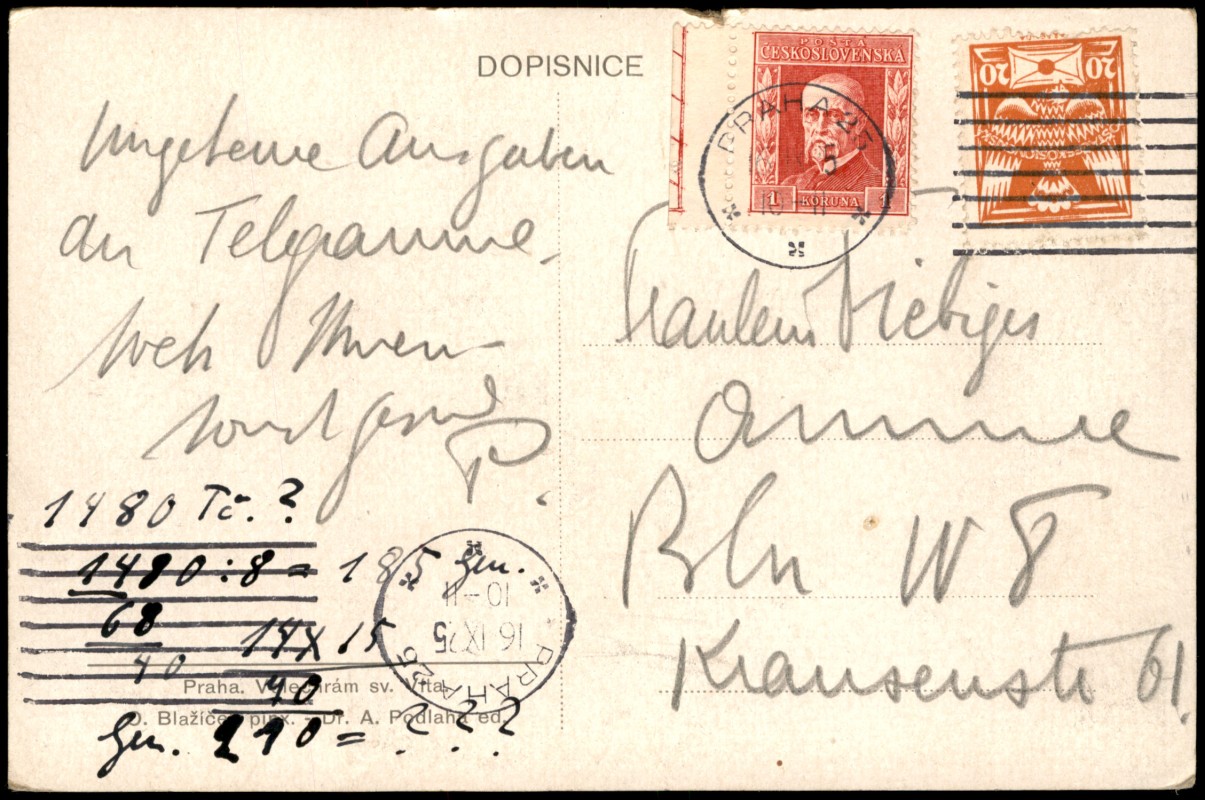 DOPISNICE
POŠTA
ČESKOSLOVENSKÁ
1 KORUNA 1
20 20
PRAHA 25
10-11
Ungeheure Ausgaben
an Telegramme.
Weh Ihnen
P.
Fräulein
Bln W 8
Krausenstr 61.
1480 Tč. ?
1480 : 8 = 185 gen.
68
40
14 x 15
40
Gen. 210 = ? ? ?
PRAHA 25
16 IX 25
10-11
Praha. Velechrám sv. Víta.
O. Blažíček pinx. - Dr. A. Podlaha ed.